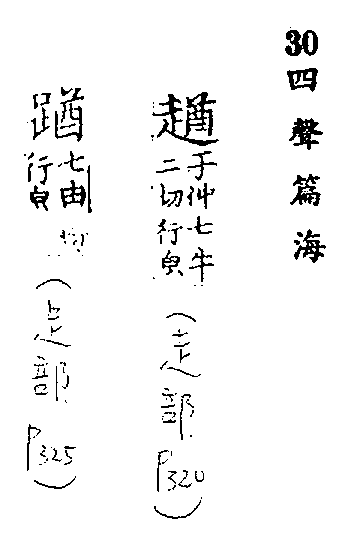 30四聲篇海
趥
于沖七牛
二切行皃
(走部
P320)
䠗
七由
行皃
(足部
P325)